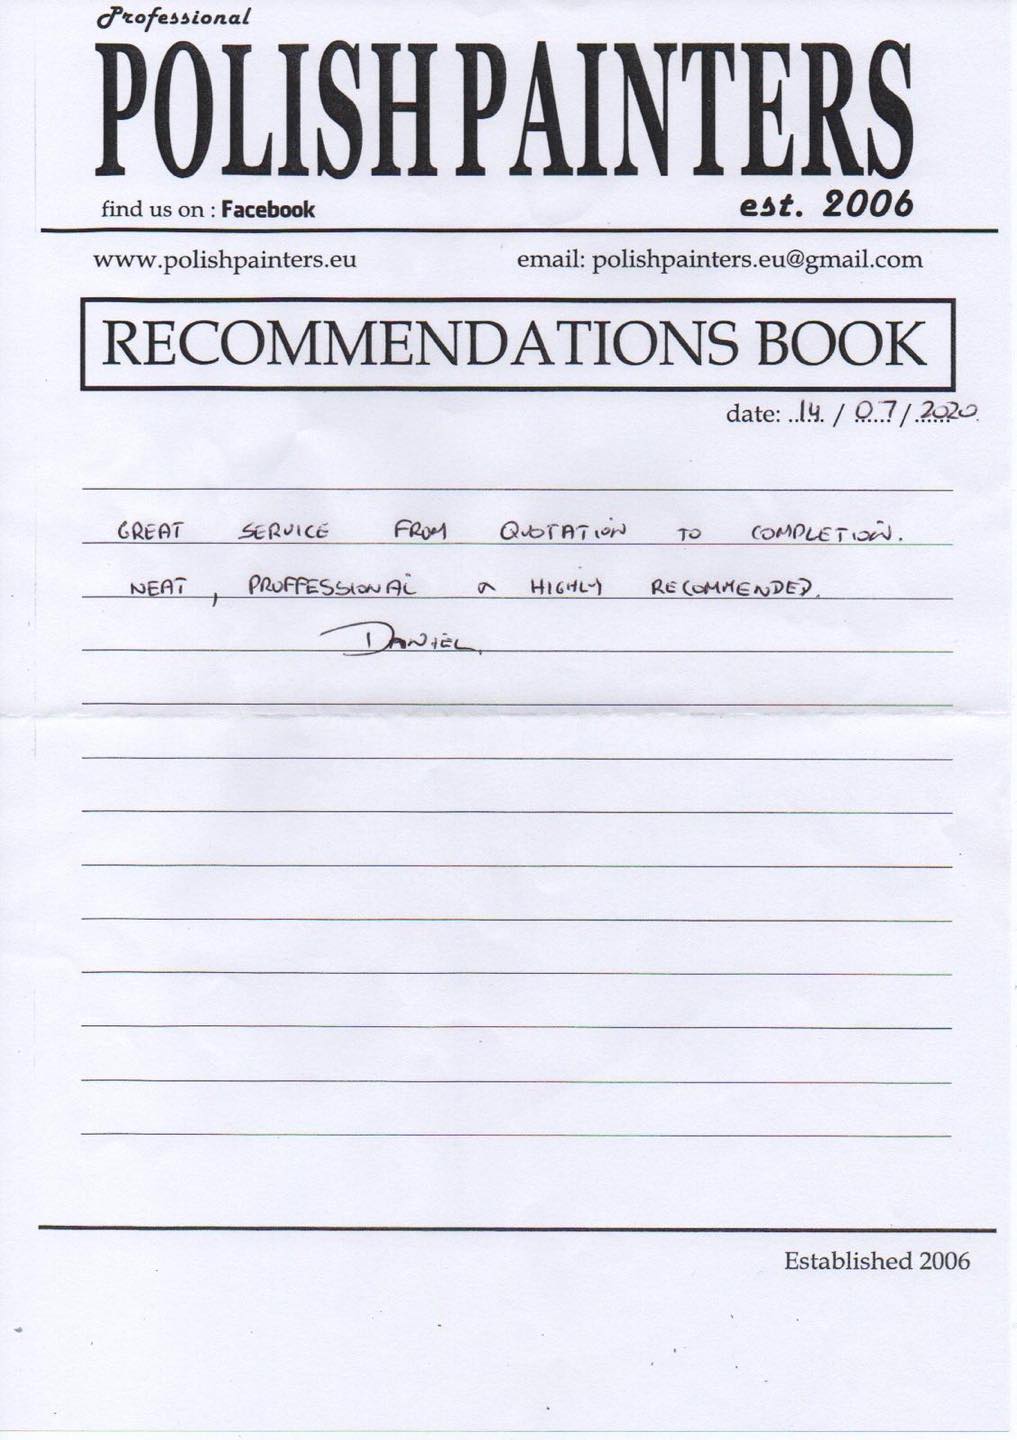 Professional
POLISH PAINTERS
find us on : Facebook est. 2006
www.polishpainters.eu email: polishpainters.eu@gmail.com
RECOMMENDATIONS BOOK
date: ..14. / 0.7 / .2020.
GREAT SERVICE FROM QUOTATION TO COMPLETION.
NEAT, PROFFESSIONAL & HIGHLY RECOMMENDED.
DANIEL.
Established 2006